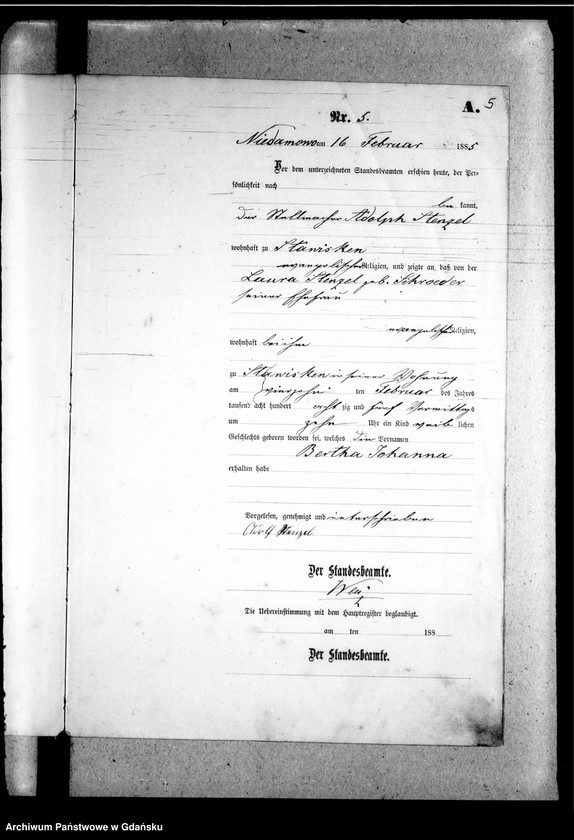 A. 5
Nr. 5.
Niedamowo am 16 Februar 1885
Vor dem unterzeichneten Standesbeamten erschien heute, der Per-
sönlichkeit nach
be kannt,
der Stellmacher Adolph Stenzel
wohnhaft zu Stawisken
evangelischer Religion, und zeigte an, daß von der
Laura Stenzel geb. Schroeder
seiner Ehefrau
evangelischer Religion,
wohnhaft bei ihm
zu Stawisken in seiner Wohnung
am vierzehn ten Februar des Jahres
tausend acht hundert acht zig und fünf Vormittags
um zehn Uhr ein Kind weib lichen
Geschlechts geboren worden sei, welches die Vornamen
Bertha Johanna
erhalten habe
Vorgelesen, genehmigt und unterschrieben
Adolf Stenzel
Der Standesbeamte.
Die Uebereinstimmung mit dem Hauptregister beglaubigt.
am ten 188
Der Standesbeamte.
Archiwum Państwowe w Gdańsku